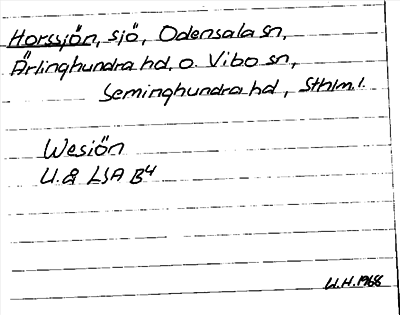 Horssjön, sjö, Odensala sn,
Ärlinghundra hd. o. Vibo sn,
Seminghundra hd, Sthlm. l.
Wesiön
U. 8 LSA B4
U.H. 1968